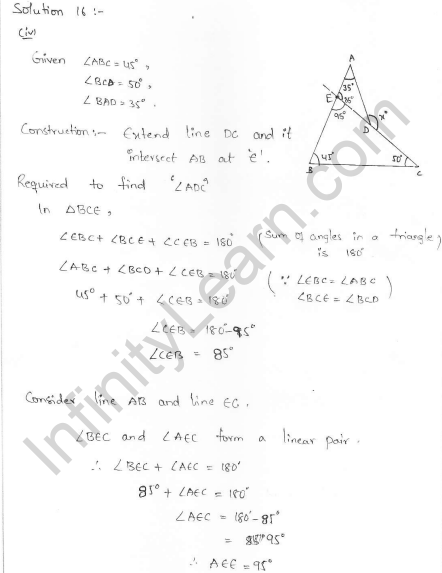 Solution 16 :-
(iv)
Given ∠ABC = 45°,
∠BCD = 50°,
∠BAD = 35°.
A
35°
E 85°
95° x°
D
45° 50°
B C
Construction:- Extend line DC and it
intersect AB at 'e'.
Required to find '∠ADC'
In △BCE,
∠EBC + ∠BCE + ∠CEB = 180° (Sum of angles in a triangle,
is 180°
∠ABC + ∠BCD + ∠CEB = 180° (∵ ∠EBC = ∠ABC
45° + 50° + ∠CEB = 180° ∠BCE = ∠BCD)
∠CEB = 180° - 95°
∠CEB = 85°
Consider line AB and line EC.
∠BEC and ∠AEC form a linear pair.
∴ ∠BEC + ∠AEC = 180°
85° + ∠AEC = 180°
∠AEC = 180° - 85°
= 95°
∴ AEE = 95°
InfinityLearn.com